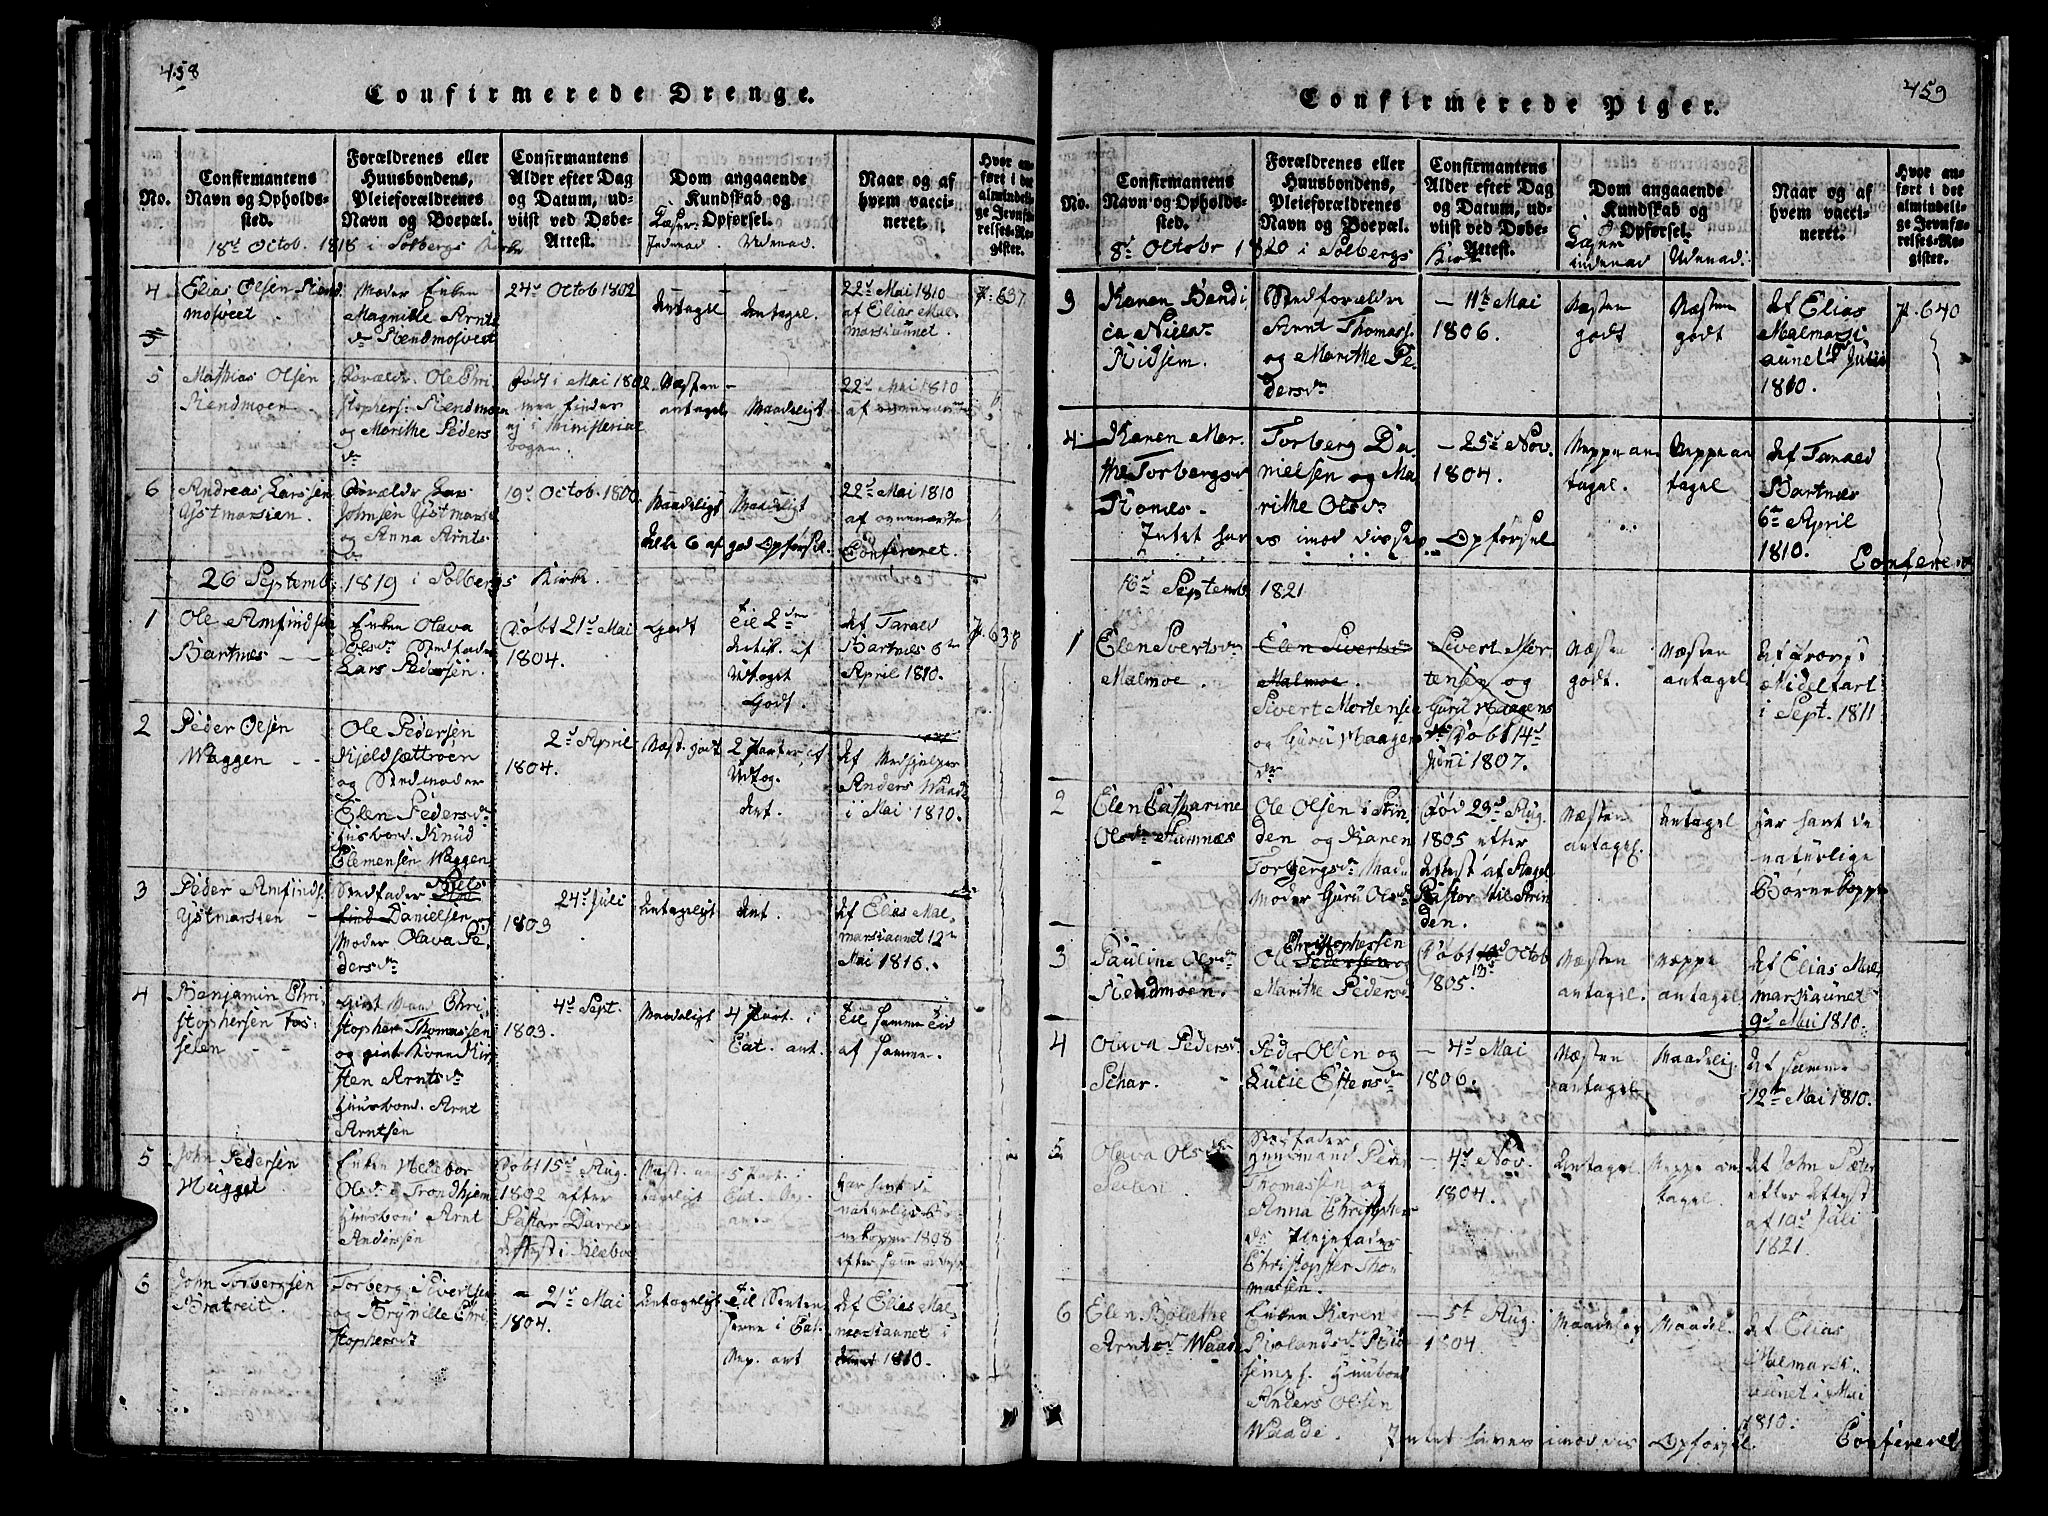 458
Confirmerede Drenge.
No.
Confirmantens
Navn og Opholds-
sted.
Forældrenes eller
Huusbondens,
Pleieforældrenes
Navn og Boepæl.
Confirmantens
Alder efter Dag
og Datum, ud-
viist ved Døbe-
Attest.
Dom angaaende
Kundskab og
Opførsel.
Indenad. Udenad.
Naar og af
hvem vacci-
neret.
Hvor an-
ført i det
almindeli-
ge Jevnfø-
relses-Re-
gister.
18d Octob. 1818 i Solbergs Kirke
4
Elias Olsen
mosveet
Moder Enken
Magnille Arnts
dr Rendmosveet
24d Octob 1802
Antagel
Antagel.
22d Mai 1810
af Elias Mal
marsiaunet
p. 637
5
Mathias Olsen
Rendmoen
Foræld. Ole Chri
stophers. Rendmoen
og Marithe Peders
dr
Født i Mai 1802
men findes
ej i Ministerial
bogen.
Næsten
antagel
Maadeligt
22d Mai 1810
af
6
Andreas Larssen
Ystmarsien.
Forældr Lars
Johnsen Ystmars.
og Anna Arnts
dr
19d Octob. 1800
Maadeligt
Maadeligt
22de Mai 1810
af ovennævnte
Alle 6 af god Opførsel.
Confereret.
26 Septemb: 1819 i Solbergs Kirke.
1
Ole Amfindsen
Bartnes
Enken Olava
Olsdr Stedfader
Lars Pedersen.
Døbt 21d Mai
1804.
Godt
til 2den
Artik. af
Udtoget
Godt.
Af Tarald
Bartnes 6te
April 1810.
p. 638
2
Peder Olsen
Waggen
Ole Pedersen
Kjeldsættroen
og Stedmoder
Elen Pedersdr
Husbond. Knud
Clemensen Waggen
2d April
1804.
Næst. godt
2 Parter af
Udtog.
Ant.
Af Medhjelper
Anders Waade
i Mai 1810.
3
Peder Amfinds.
Ystmarsien
Stedfader Niels
Danielsen og
Moder Olava Pe
dersdr
24d Juli
1803
Antageligt
Ant.
Af Elias Mal-
marsiaunet 12te
Mai 1816.
4
Benjamin Chri
stophersen Fos-
seien
Gift Mand Chri
stopher Thomassen
og gift Kone Kir
sten Arntsdr
Huusbond. Arnt
Arntsen
4d Sept.
1803.
Maadeligt
4 Part. i
Cat. ant.
Til samme Tid
af samme.
5
John Pedersen
Hugget
Enken Hellebor
Olsdr i Trondhjem
Huusbond Arnt
Anderssen
Døbt 15d Aug.
1802 efter
Pastor Darres
Attest i Kleboe
Næst. an
tageligt
5 Part. i
Cat.
ant
Har havt de
naturlige Bør
nekopper 1808
efter samme attest
6
John Torbergsen
Bratreit.
Torberg Sivertsen
og Brynille Chri
stophersdr
21d Mai
1804.
Antageligt
til Senten
serne i Cat.
ant
Af Elias Mal
marsiaunet i
1810.
459
Confirmerede Piger.
No.
Confirmantens
Navn og Opholds-
sted.
Forældrenes eller
Huusbondens,
Pleieforældrenes
Navn og Boepæl.
Confirmantens
Alder efter Dag
og Datum, ud-
viist ved Døbe-
Attest.
Dom angaaende
Kundskab og
Opførsel.
indenad Udenad.
Naar og af
hvem vacci-
neret.
Hvor an-
ført i det
almindeli-
ge Jevnfø-
relses-Re-
gister.
8d Octobr 1820 i Solbergs Kirke
3
Karen Bendi
cta Nielsdr
Ridsem.
Stedforældre
Arnt Thomass.
og Marithe Pe
dersdr
— 11te Mai
1806.
Næsten
godt
Næsten
godt
Af Elias
Malmarsi
aunet 1d Julii
1810.
p. 640
4
Karen Mar
the Torbergsdr
Romes
Torberg Da
nielsen og Ma
rithe Olsdr
— 25d Nov.
1804.
Neppe an
tagel.
Neppe an
tagel
Af Tarald
Bartnes
6te April
1810.
Intet haves imod disses Opførsel
Confereret
16d Septemb 1821
1
Elen Svertsdr
Malmoe.
Elen Sivertsdr
Malmoe.
Sivert Mortensen
og Guru Haagens
dr
Sivert Mor
tensen og
Guru Haagens
dr Døbt 14d
Juni 1807.
Næsten
godt.
Næsten
antagel.
Af Provst
Middelfart
i Sept. 1811
2
Elen Catharine
Olsdr Humnæs
Ole Olsen i Strin
den og Karen
Torbergsdr Mad
moder Guru Olsdr
Død 23d Aug.
1805 efter
Attest af Angel
Pastor til Strin
den.
Næsten
antagel.
Antagel
Har havt de
naturlige
Børnekopper
3
Pauline Olsdr
Rendmoen.
Ole Pedersen Christophersen og
Marithe Pedersdr
Døbt 13d Octob
1805.
Næsten
antagel.
Neppe
antagel
Af Elias Mal
marsiaunet
9d Mai 1810.
4
Olava Pedersdr
Schar.
Peder Olsen og
Lucie Estensdr
— 4d Mai
1806.
Næsten
antagel
Maadelig
Af samme
12te Mai 1810.
5
Olava Olsdr
Stedfader
Huusmand Peder
Thomassen og
Anna Christopher
dr Plejefader
Christopher Tho
massen.
— 4d Nov.
1804.
Antagel
Neppe an
tagel
Af John Sæter
efter Attest
af 10d Juli
1821.
6
Elen Bolethe
Arntsdr Waade
Enken Karen
Rolandsdr Rid
sem pf. Huusbond
Anders Olsen
Waade.
— 5t Aug.
1804.
Maadelig
Maadel.
Af Elias
Malmarsi
aunet i Mai
1810.
Intet haves imod dis Opførsel.
Confereret